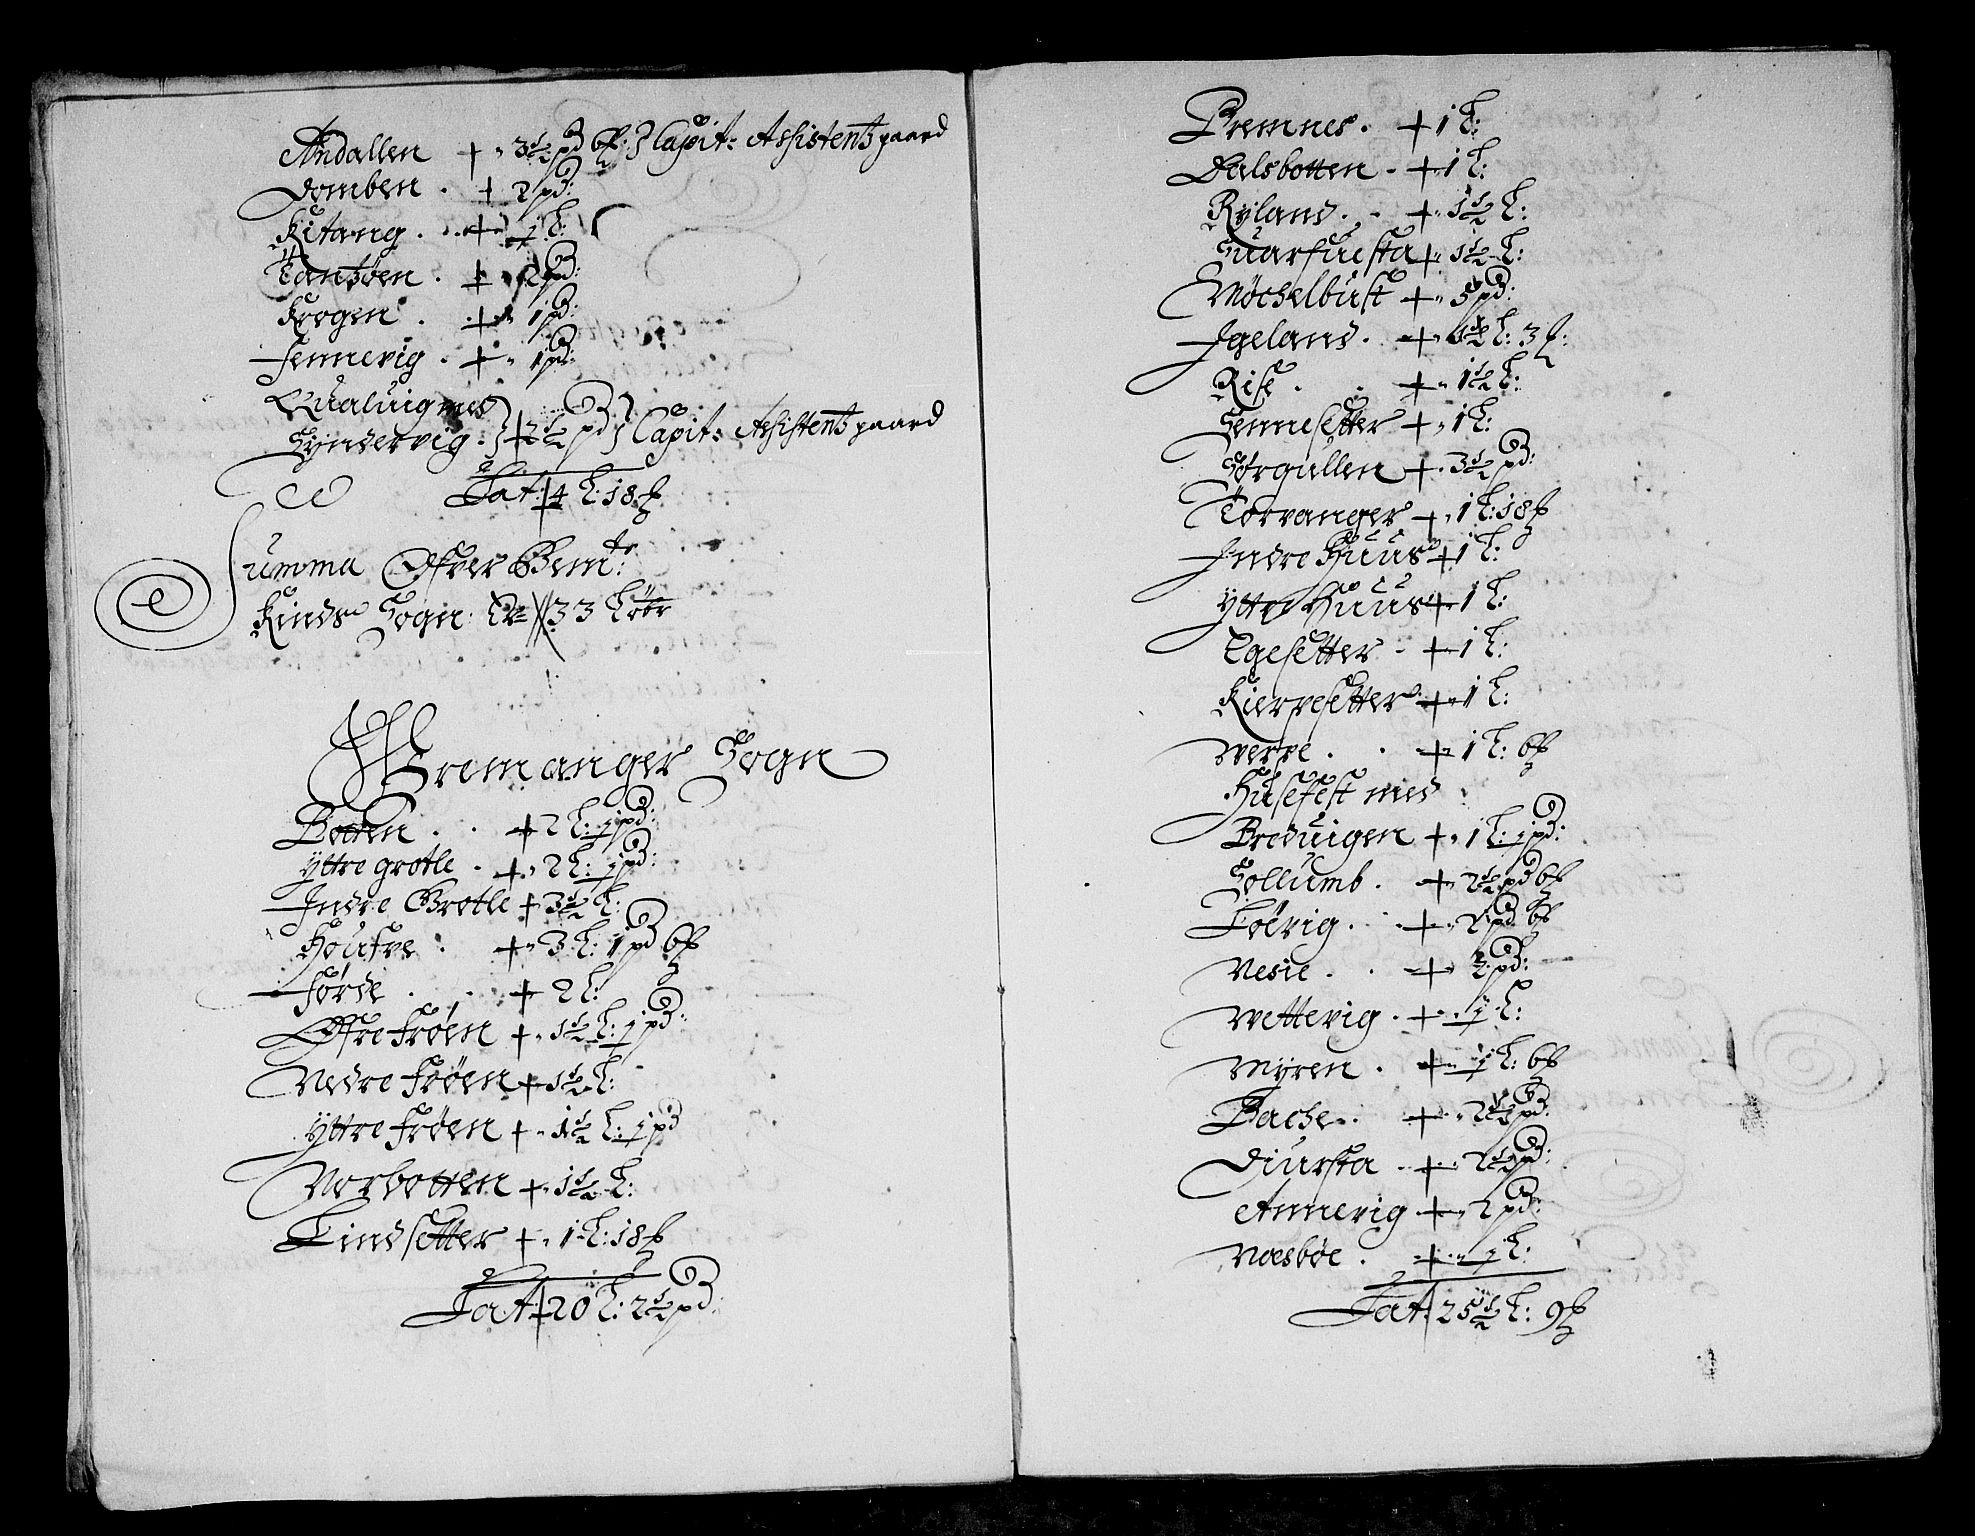 Andallen + 3½ pd 6 f: } Capit: Assistentz gaard
Domben . + 2 pd:
Kitang . + j L:
Tansøen . + 2 pd:
Krogen . + 1 pd:
Fennevig . + 1 pd:
Qualuignes
Hyndervig . } + 2½ pd } Capit: Assistentz gaard
Lat: 4 L: 18 f
Summa Ofver Bem.te
Kinds Sogn: Er 33 Løbr
Bremanger Sogn
Botten . . + 2 L: j pd:
Yttre grotle . + 2 L: j pd:
Indre Grotle + 3½ L:
Houfve . + 3 L: 1 pd 6 f
Førde . . + 2 L:
Offre Frøen + 1½ L: j pd:
Nedre Frøen + 1½ L:
Yttre Frøen + 1½ L: j pd
Norbotten + 1½ L:
Lindsetter + 1 L: 18 f
Lat: 20 L: 2½ pd:
Bremnes . + 1 L:
Dalsbotten . + 1 L:
Ryland . . + 1½ L:
Suarfuesta + 1½ L:
Møchelbust + 5 pd:
Igeland . + 1½ L: 3 f:
Rise . . + 1½ L:
Hennesetter + 1 L:
Sørgullen + 3½ pd:
Torvanger + 1 L: 18 f
Indre Huus + 1 L:
Yttre Huus + 1 L:
Egesetter - + 1 L:
Kierpesetter + 1 L:
Werpe . . + 1 L: 6 f
Husefest med
Breduigen + 1 L: j pd:
Hollumb . + 2½ pd 6 f
Loevig . . + 2 pd 6 f
Nesie . . + 2 pd:
Wettevig . + j L:
Myren . + j L: 6 f
Bache . . + 2½ pd:
Diursta . + 2½ pd:
Annevig + 2 pd:
Næsbøe . + j L:
Lat: 25½ L: 9 f